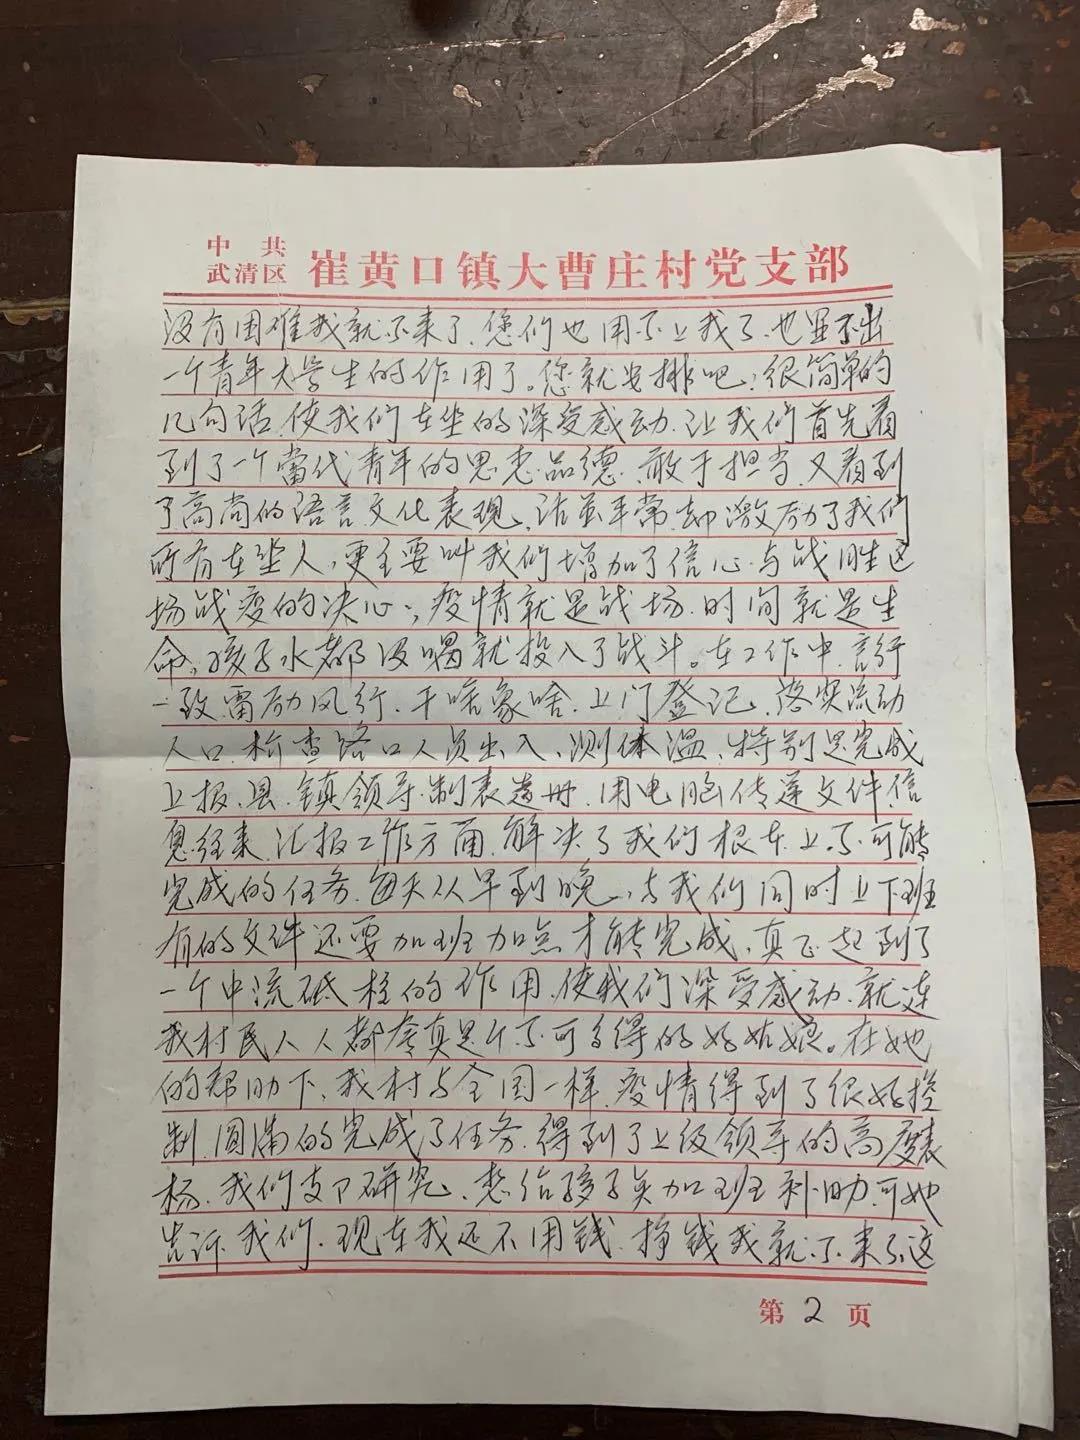 中共
武清区 崔黄口镇大曹庄村党支部
没有困难我就不来了、您们也用不上我了、也显不出
一个青年大学生的作用了。您就安排吧；很简单的
几句话、使我们在坐的深受感动、让我们首先看
到了一个当代青年的思想品德、敢于担当、又看到
了高尚的语言文化表现、话虽平常、却激励了我们
所有在坐人，更主要叫我们增加了信心与战胜这
场战疫的决心；疫情就是战场、时间就是生
命、孩子水都没喝就投入了战斗。在工作中、言行
一致、雷励风行、干啥象啥、上门登记、落实流动
人口、检查路口人员出入、测体温、特别是完成
上报、县、镇领导、制表造册、用电脑传递文件、信
息往来、汇报工作方面、解决了我们根本上不可能
完成的任务、每天从早到晚、与我们同时上下班
有的文件还要加班加点才能完成、真正起到了
一个中流砥柱的作用、使我们深受感动、就连
我村民人人都夸真是个不可多得的好姑娘。在她
的帮助下、我村与全国一样、疫情得到了很好控
制、圆满的完成了任务、得到了上级领导的高度表
杨、我们支下研究、想给孩子点加班补助、可她
告诉我们、现在我还不用钱、挣钱我就不来了、这
第 2 页